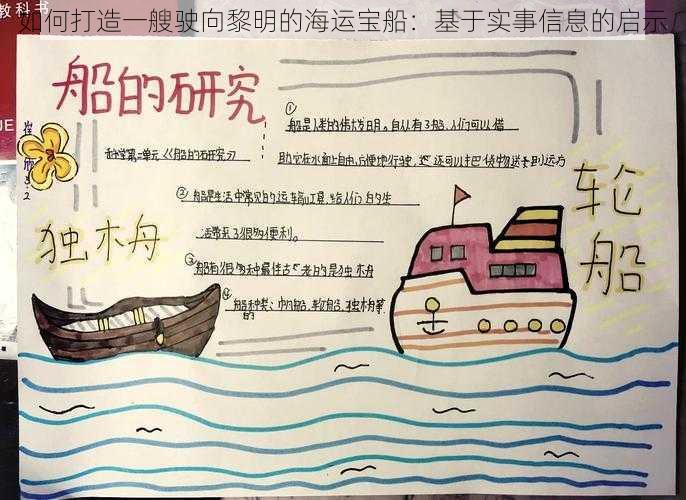 教科书
如何打造一艘驶向黎明的海运宝船：基于实事信息的启示
JE
船的研究
科学第二单元《船的研究》
①
船是人类的伟大发明。自从有了船，人们可以借
助它在水面上自由、方便地行驶，还可以把货物送到远方
②船是生活中常见的运输工具，给人们的生
活带来了很多便利。
③船有很多种最古老的是独木舟
④船的种类：帆船、轮船、独木舟等
独木舟
轮船